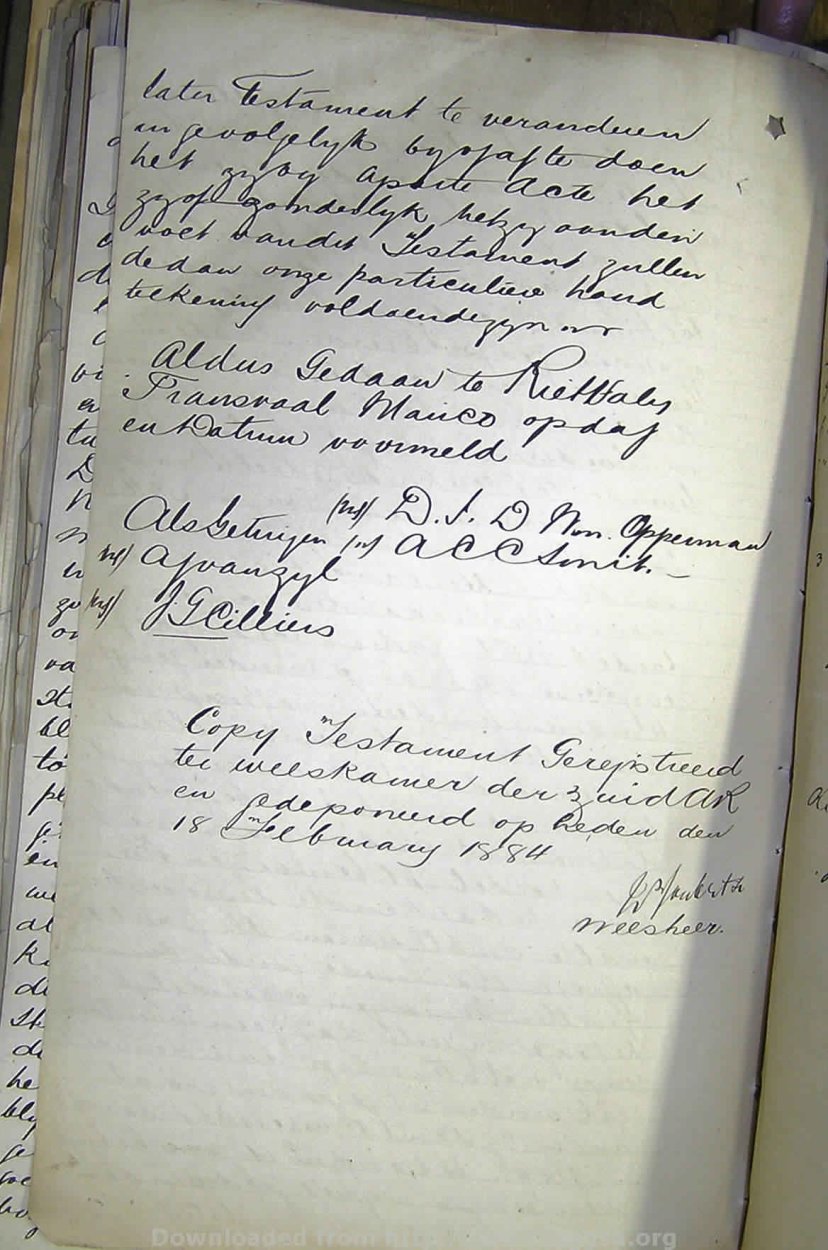 later Testament te veranderen
en gevolgelyk by of af te doen
het zy by aparte Acte het
zy afzonderlyk hetzy aanden
voet vandit Testament zullen
dedan onze particuliere hand
teekening voldaendezyn
Aldus Gedaan te Rietvaly
Transvaal Marico op dag
en Datum voormeld
(wg) D. J. D Wm. Opperman
Als Getuigen (wg) A C C Smit.
(wg) AJvanzyl
(wg) J G Cilliers
Copy Testament Geregistreerd
ter weeskamer der Zuid AR
en gedeponeerd op heden den
18 February 1884
Weesheer.
Downloaded from http .org